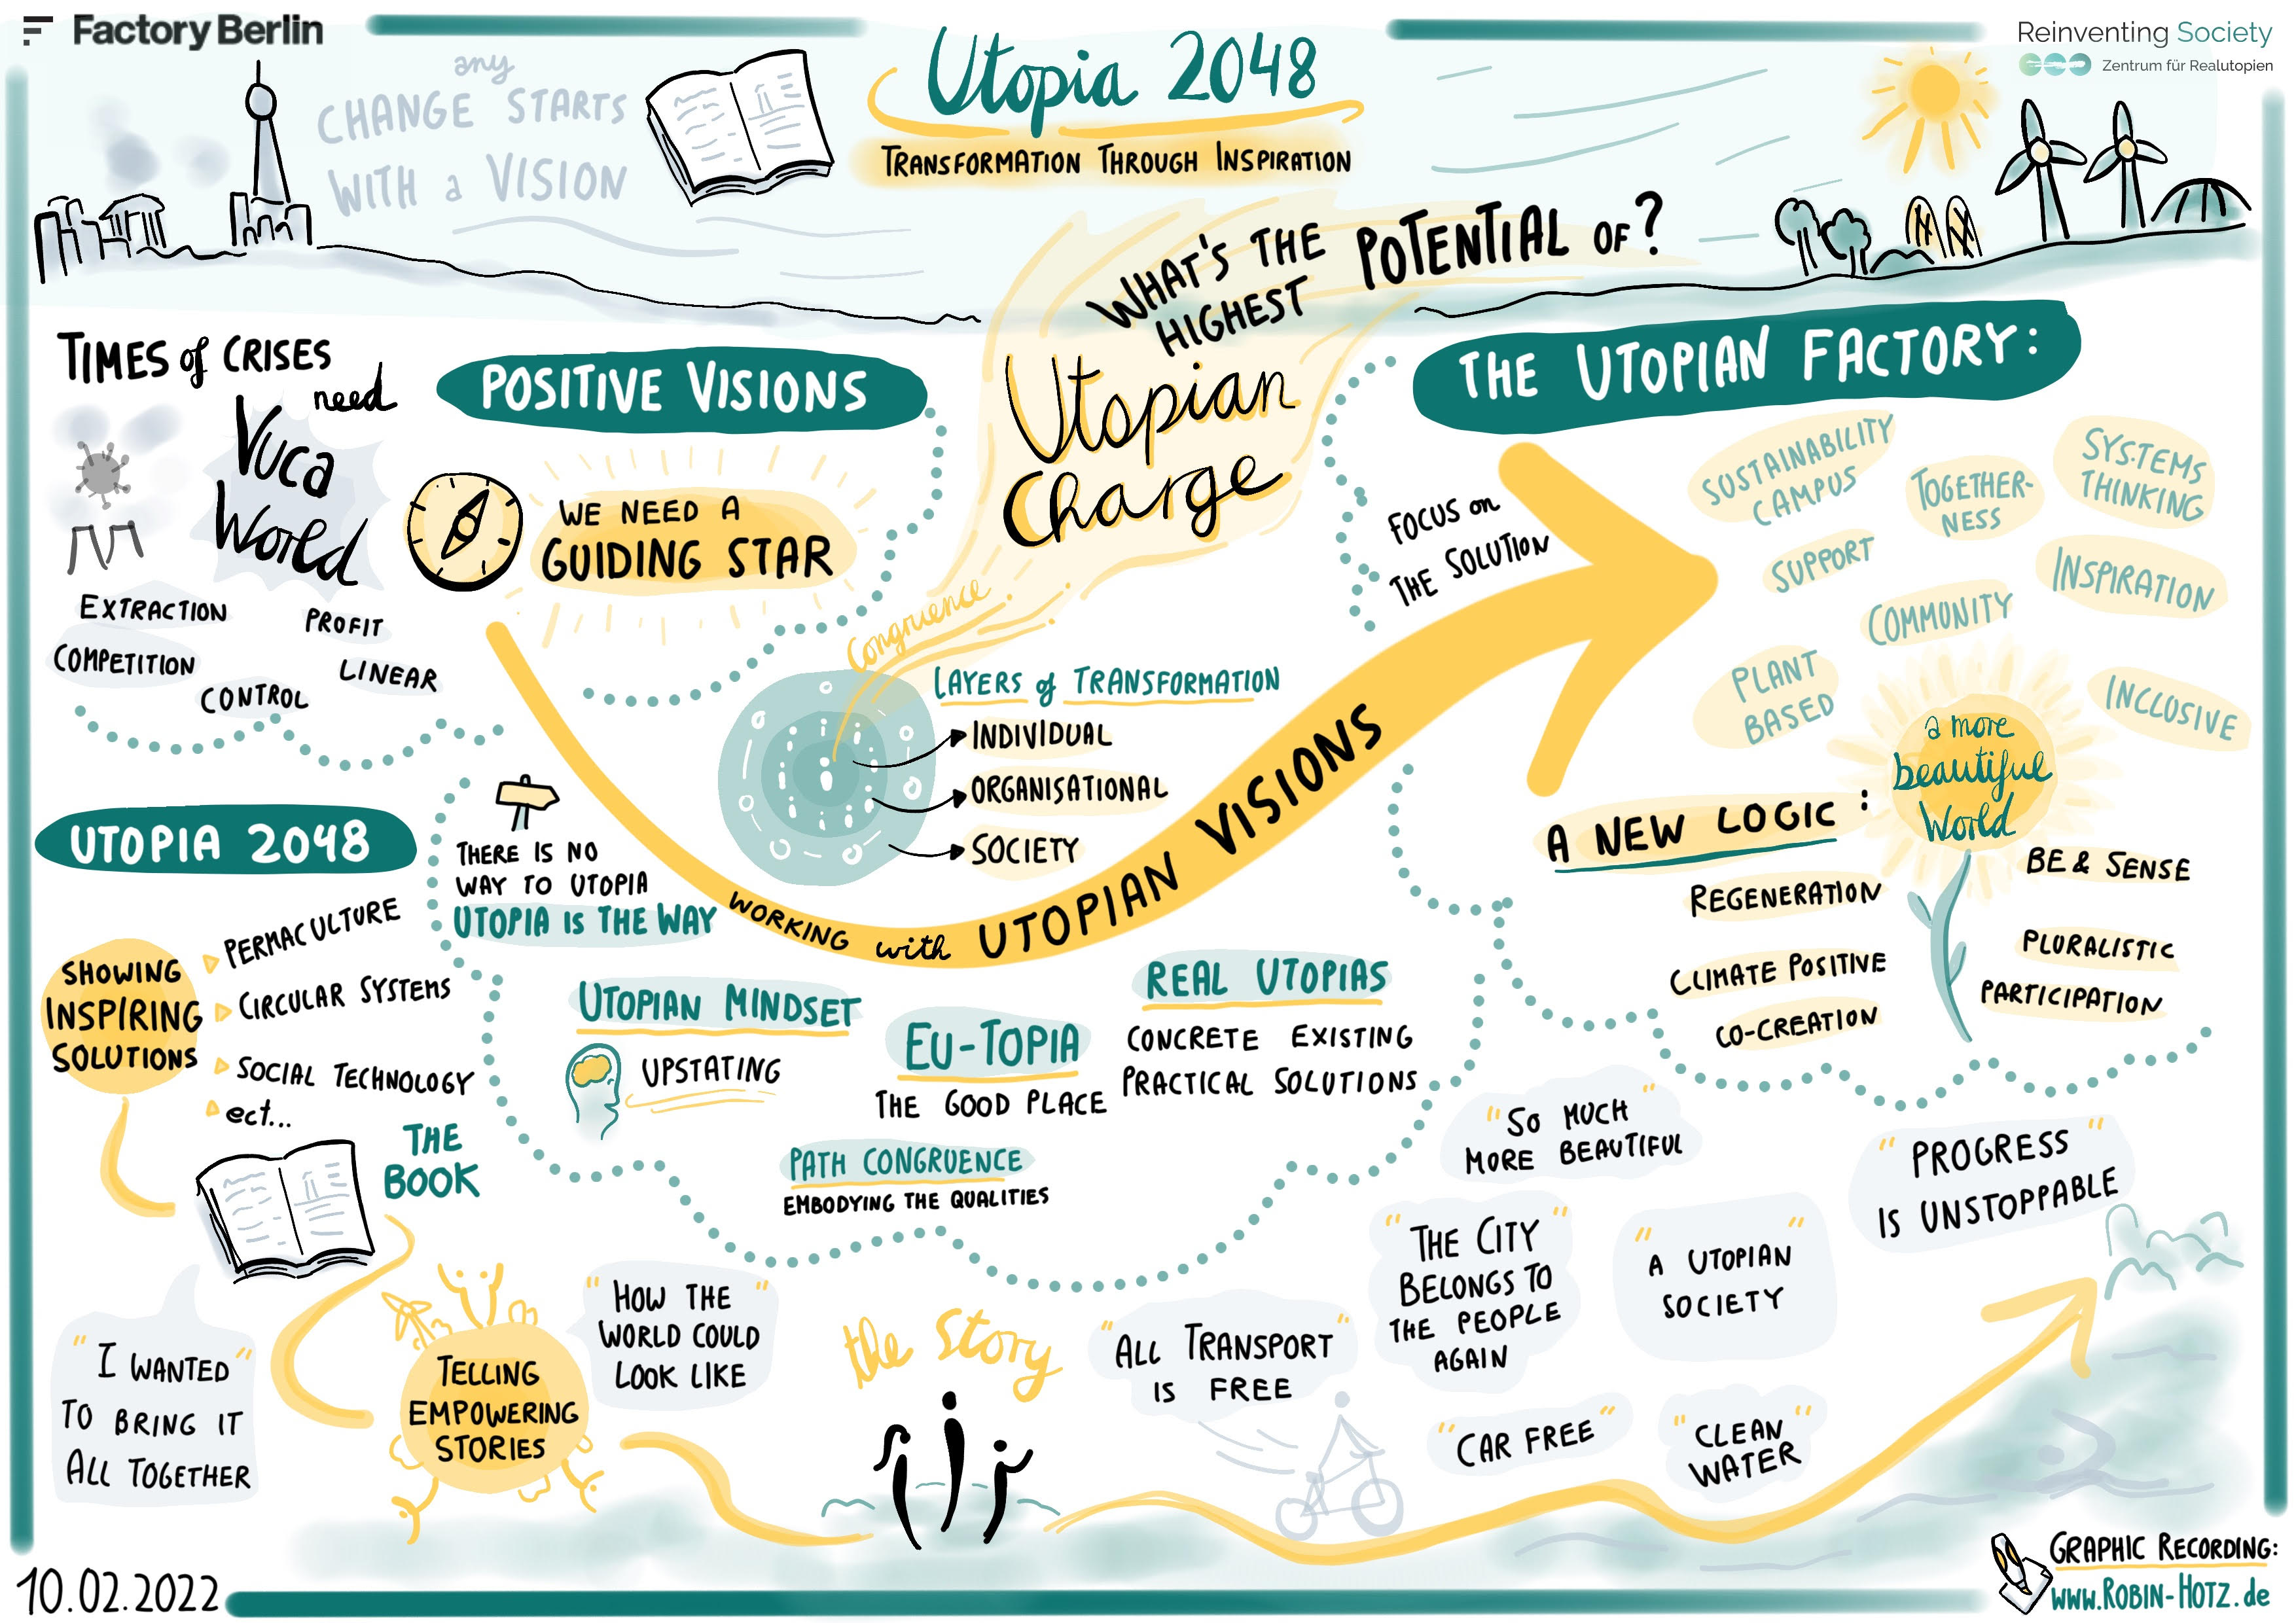 Factory Berlin
any
CHANGE STARTS
WITH a VISION
Utopia 2048
TRANSFORMATION THROUGH INSPIRATION
Reinventing Society
Zentrum für Realutopien
TIMES of CRISES
need
VUCA
World
EXTRACTION
PROFIT
COMPETITION
LINEAR
CONTROL
POSITIVE VISIONS
WE NEED A
GUIDING STAR
WHAT'S THE
HIGHEST
POTENTIAL OF?
Utopian
Charge
Congruence
LAYERS of TRANSFORMATION
INDIVIDUAL
ORGANISATIONAL
SOCIETY
THE UTOPIAN FACTORY:
FOCUS on
THE SOLUTION
SUSTAINABILITY
CAMPUS
TOGETHER-
NESS
SYSTEMS
THINKING
SUPPORT
INSPIRATION
COMMUNITY
PLANT
BASED
INCLUSIVE
a more
beautiful
World
A NEW LOGIC:
REGENERATION
CLIMATE POSITIVE
CO-CREATION
BE & SENSE
PLURALISTIC
PARTICIPATION
WORKING with UTOPIAN VISIONS
UTOPIA 2048
SHOWING
INSPIRING
SOLUTIONS
PERMACULTURE
CIRCULAR SYSTEMS
SOCIAL TECHNOLOGY
ect...
THE
BOOK
THERE IS NO
WAY TO UTOPIA
UTOPIA IS THE WAY
UTOPIAN MINDSET
UPSTATING
EU-TOPIA
THE GOOD PLACE
REAL UTOPIAS
CONCRETE EXISTING
PRACTICAL SOLUTIONS
PATH CONGRUENCE
EMBODYING THE QUALITIES
"I WANTED"
TO BRING IT
ALL TOGETHER
TELLING
EMPOWERING
STORIES
"HOW THE"
WORLD COULD
LOOK LIKE
the Story
"ALL TRANSPORT"
IS FREE
"SO MUCH"
MORE BEAUTIFUL
"THE CITY"
BELONGS TO
THE PEOPLE
AGAIN
"A UTOPIAN"
SOCIETY
"PROGRESS"
IS UNSTOPPABLE
"CAR FREE"
"CLEAN"
WATER
10.02.2022
GRAPHIC RECORDING:
www.ROBIN-HOTZ.de